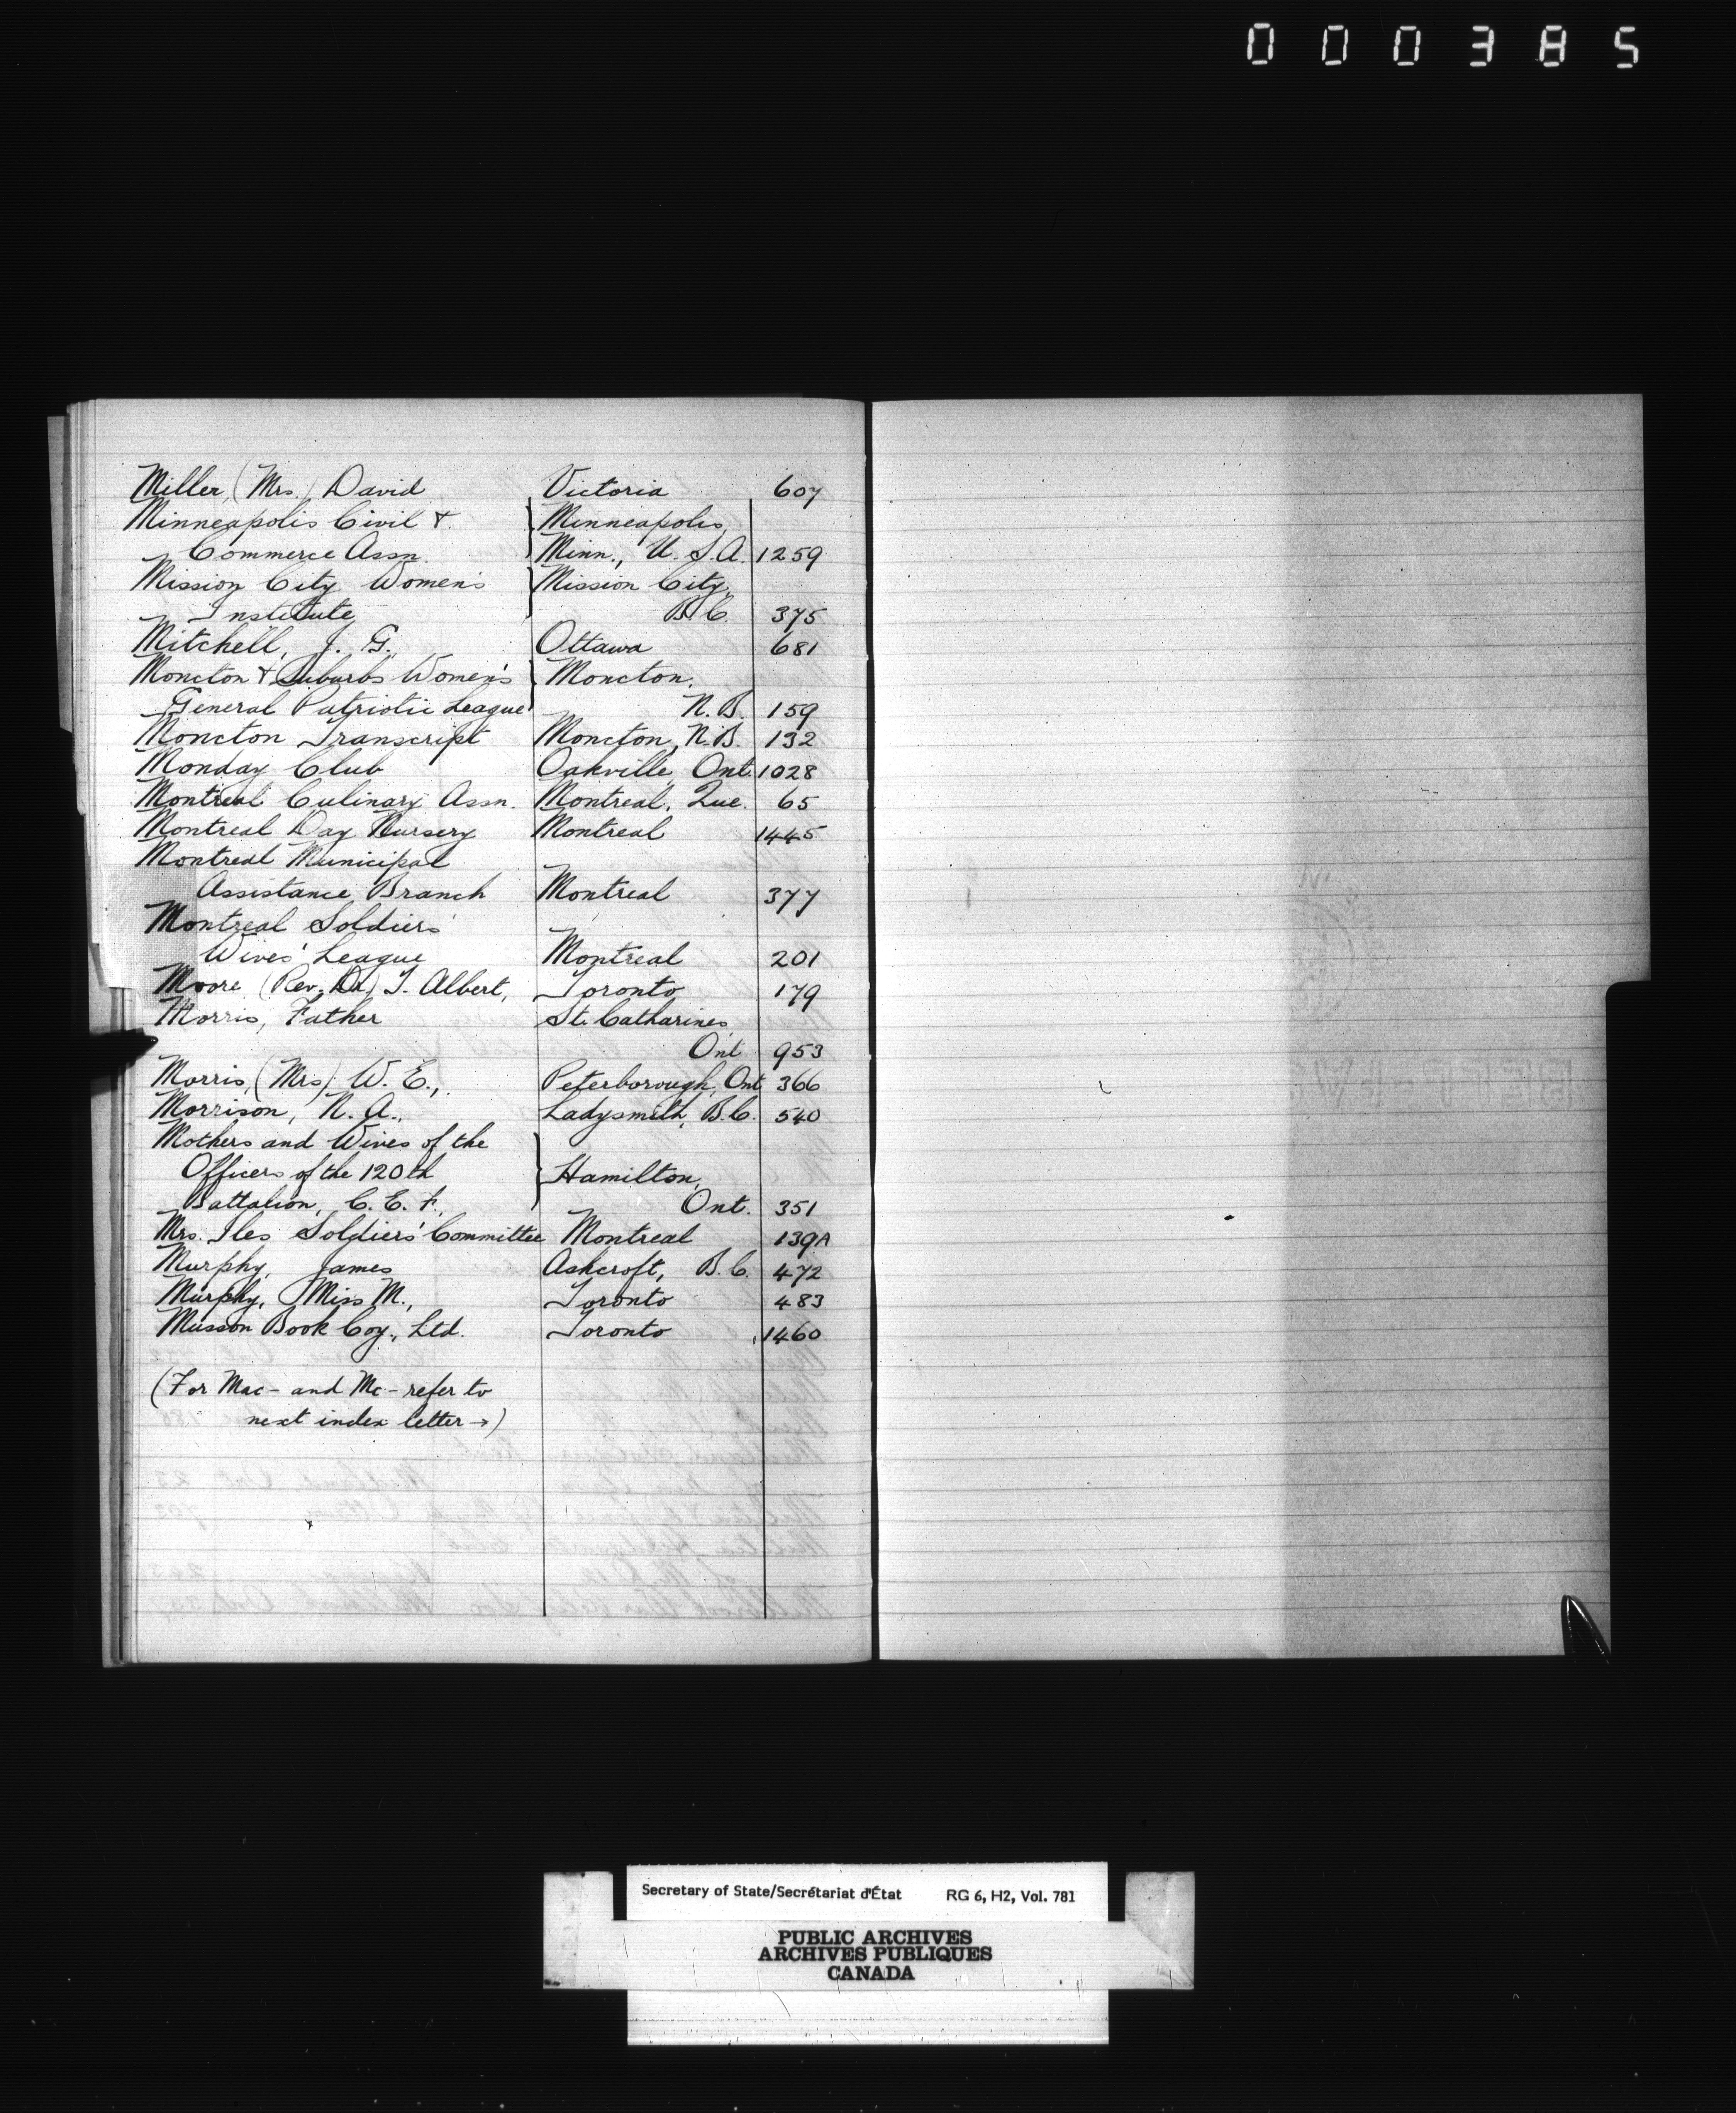 000385
Miller, (Mrs.) David Victoria 607
Minneapolis Civil & Minneapolis,
Commerce Assn. Minn., U.S.A. 1259
Mission City Women's Mission City,
Institute B.C. 375
Mitchell, J. G., Ottawa 681
Moncton & Suburbs Women's Moncton,
General Patriotic League N.B. 159
Moncton Transcript Moncton, N.B. 132
Monday Club Oakville, Ont. 1028
Montreal Culinary Assn. Montreal, Que. 65
Montreal Day Nursery Montreal 1445
Montreal Municipal
Assistance Branch Montreal 377
Montreal Soldiers'
Wives' League Montreal 201
Moore (Rev. Dr.) T. Albert, Toronto 179
Morris, Father St. Catharines,
Ont. 953
Morris, (Mrs) W. E., Peterborough, Ont 366
Morrison, N. A., Ladysmith, B.C. 540
Mothers and Wives of the
Officers of the 120th Hamilton,
Battalion, C. E. F., Ont. 351
Mrs. Iles Soldiers' Committee Montreal 139A
Murphy, James Ashcroft, B.C. 472
Murphy, Miss M., Toronto 483
Musson Book Coy., Ltd. Toronto 1460
(For Mac- and Mc- refer to
next index letter →)
Secretary of State/Secrétariat d'État RG 6, H2, Vol. 781
PUBLIC ARCHIVES
ARCHIVES PUBLIQUES
CANADA